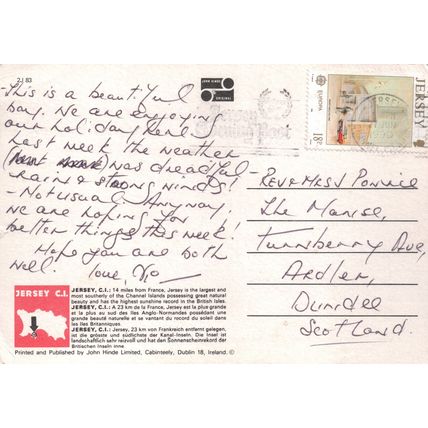 2J 83
JOHN HINDE
ORIGINAL
EUROPA
JERSEY
18P
-This is a beautiful
bay. We are enjoying
our holiday here.
Last week the weather
was dreadful -
rain & strong winds!
- Not usual. Anyway,
we are hoping for
better things this week!
Hope you are both
well. love
- Rev & Mrs J Pennie
The Manse,
Turnberry Ave,
Ardler,
Dundee
Scotland.
JERSEY C.I.
JERSEY, C.I.: 14 miles from France, Jersey is the largest and
most southerly of the Channel Islands possessing great natural
beauty and has the highest sunshine record in the British Isles.
JERSEY, C.I.: A 23 km de la France, Jersey est la plus grande
et la plus au sud des Iles Anglo-Normandes possédant une
grande beauté naturelle et se vantant du record du soleil dans
les Iles Britanniques.
JERSEY, C.I.: Jersey, 23 km von Frankreich entfernt gelegen,
ist die grösste und südlichste der Kanal-Inseln. Die Insel ist
landschaftlich sehr reizvoll und hat den Sonnenscheinrekord der
Britischen Inseln inne.
Printed and Published by John Hinde Limited, Cabinteely, Dublin 18, Ireland. ©